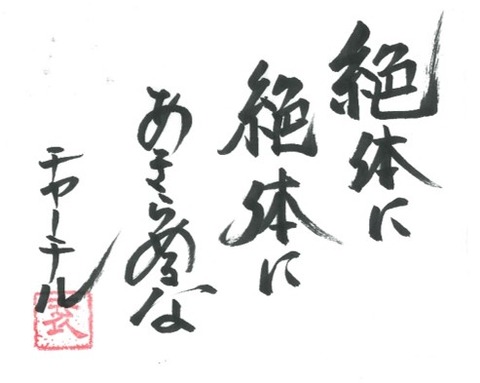 絶体に
絶体に
あきらめるな
チャーチル